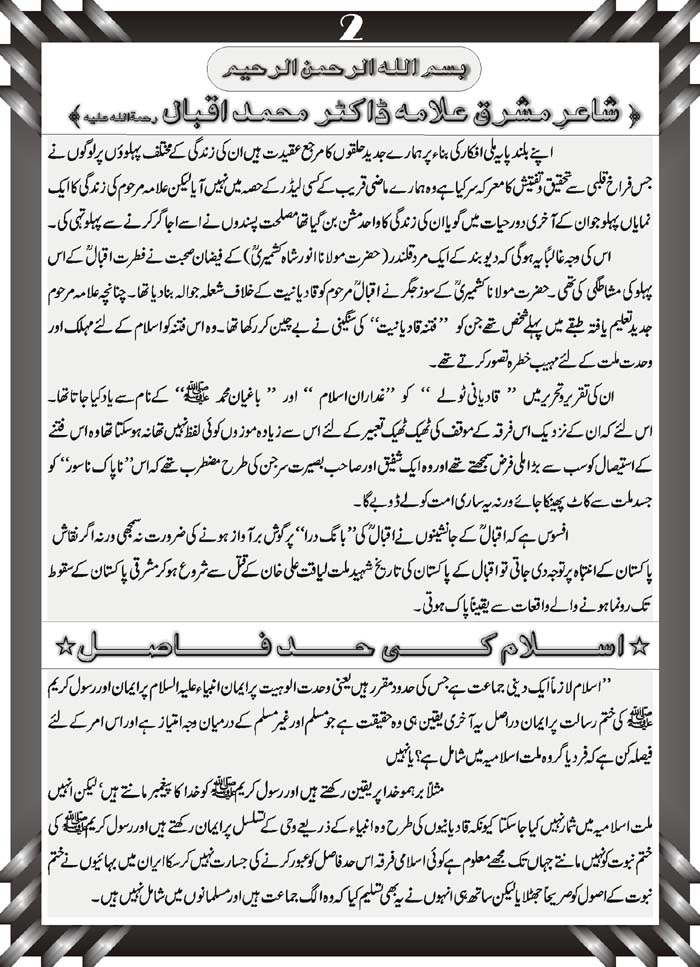 2
بسم الله الرحمن الرحيم
﴿ شاعرِ مشرق علامہ ڈاکٹر محمد اقبال رحمۃ اللہ علیہ ﴾
اپنے بلند پایہ ملی افکار کی بناء پر ہمارے جدید حلقوں کا مرجع عقیدت ہیں ان کی زندگی کے مختلف پہلوؤں پر لوگوں نے
جس فراخ قلبی سے تحقیق و تفتیش کا معرکہ سر کیا ہے وہ ہمارے ماضی قریب کے کسی لیڈر کے حصہ میں نہیں آیا لیکن علامہ مرحوم کی زندگی کا ایک
نمایاں پہلو جو ان کے آخری دور حیات میں گویا ان کی زندگی کا واحد مشن بن گیا تھا مصلحت پسندوں نے اسے اجاگر کرنے سے پہلو تہی کی۔
اس کی وجہ غالباً یہ ہوگی کہ دیو بند کے ایک مرد قلندر (حضرت مولانا انور شاہ کشمیریؒ) کے فیضان صحبت نے فطرت اقبالؒ کے اس
پہلو کی مشاطگی کی تھی۔ حضرت مولانا کشمیریؒ کے سوز جگر نے اقبالؒ مرحوم کو قادیانیت کے خلاف شعلہ جوالہ بنا دیا تھا۔ چنانچہ علامہ مرحوم
جدید تعلیم یافتہ طبقے میں پہلے شخص تھے جن کو ’’فتنہ قادیانیت‘‘ کی سنگینی نے بے چین کر رکھا تھا۔ وہ اس فتنہ کو اسلام کے لئے مہلک اور
وحدت ملت کے لئے مہیب خطرہ تصور کرتے تھے۔
ان کی تقریر و تحریر میں ’’ قادیانی ٹولے ‘‘ کو ’’غداران اسلام ‘‘ اور ’’ باغیان محمد ﷺ ‘‘ کے نام سے یاد کیا جاتا تھا۔
اس لئے کہ ان کے نزدیک اس فرقہ کے موقف کی ٹھیک ٹھیک تعبیر کے لئے اس سے زیادہ موزوں کوئی لفظ نہیں تھا نہ ہو سکتا تھا وہ اس فتنے
کے استیصال کو سب سے بڑا ملی فرض سمجھتے تھے اور وہ ایک شفیق اور صاحب بصیرت سرجن کی طرح مضطرب تھے کہ اس ’’ناپاک ناسور‘‘ کو
جسد ملت سے کاٹ پھینکا جائے ورنہ یہ ساری امت کو لے ڈوبے گا۔
افسوس ہے کہ اقبالؒ کے جانشینوں نے اقبالؒ کی ’’بانگ درا‘‘ پر گوش بر آواز ہونے کی ضرورت نہ سمجھی ورنہ اگر نقاش
پاکستان کے انتباہ پر توجہ دی جاتی تو اقبال کے پاکستان کی تاریخ شہید ملت لیاقت علی خان کے قتل سے شروع ہو کر مشرقی پاکستان کے سقوط
تک رونما ہونے والے واقعات سے یقیناً پاک ہوتی۔
★ اسلام کی حد فاصل ★
’’اسلام لازماً ایک دینی جماعت ہے جس کی حدود مقرر ہیں یعنی وحدت الوہیت پر ایمان انبیاء علیہ السلام پر ایمان اور رسول کریم
ﷺ کی ختم رسالت پر ایمان دراصل یہ آخری یقین ہی وہ حقیقت ہے جو مسلم اور غیر مسلم کے درمیان وجہ امتیاز ہے اور اس امر کے لئے
فیصلہ کن ہے کہ فرد یا گروہ ملت اسلامیہ میں شامل ہے؟ یا نہیں
مثلاً برہمو خدا پر یقین رکھتے ہیں اور رسول کریم ﷺ کو خدا کا پیغمبر مانتے ہیں‘ لیکن انہیں
ملت اسلامیہ میں شمار نہیں کیا جا سکتا کیونکہ قادیانیوں کی طرح وہ انبیاء کے ذریعے وحی کے تسلسل پر ایمان رکھتے ہیں اور رسول کریم ﷺ کی
ختم نبوت کو نہیں مانتے جہاں تک مجھے معلوم ہے کوئی اسلامی فرقہ اس حد فاصل کو عبور کرنے کی جسارت نہیں کر سکا ایران میں بہائیوں نے ختم
نبوت کے اصول کو صریحاً جھٹلایا لیکن ساتھ ہی انہوں نے یہ بھی تسلیم کیا کہ وہ الگ جماعت ہیں اور مسلمانوں میں شامل نہیں ہیں۔